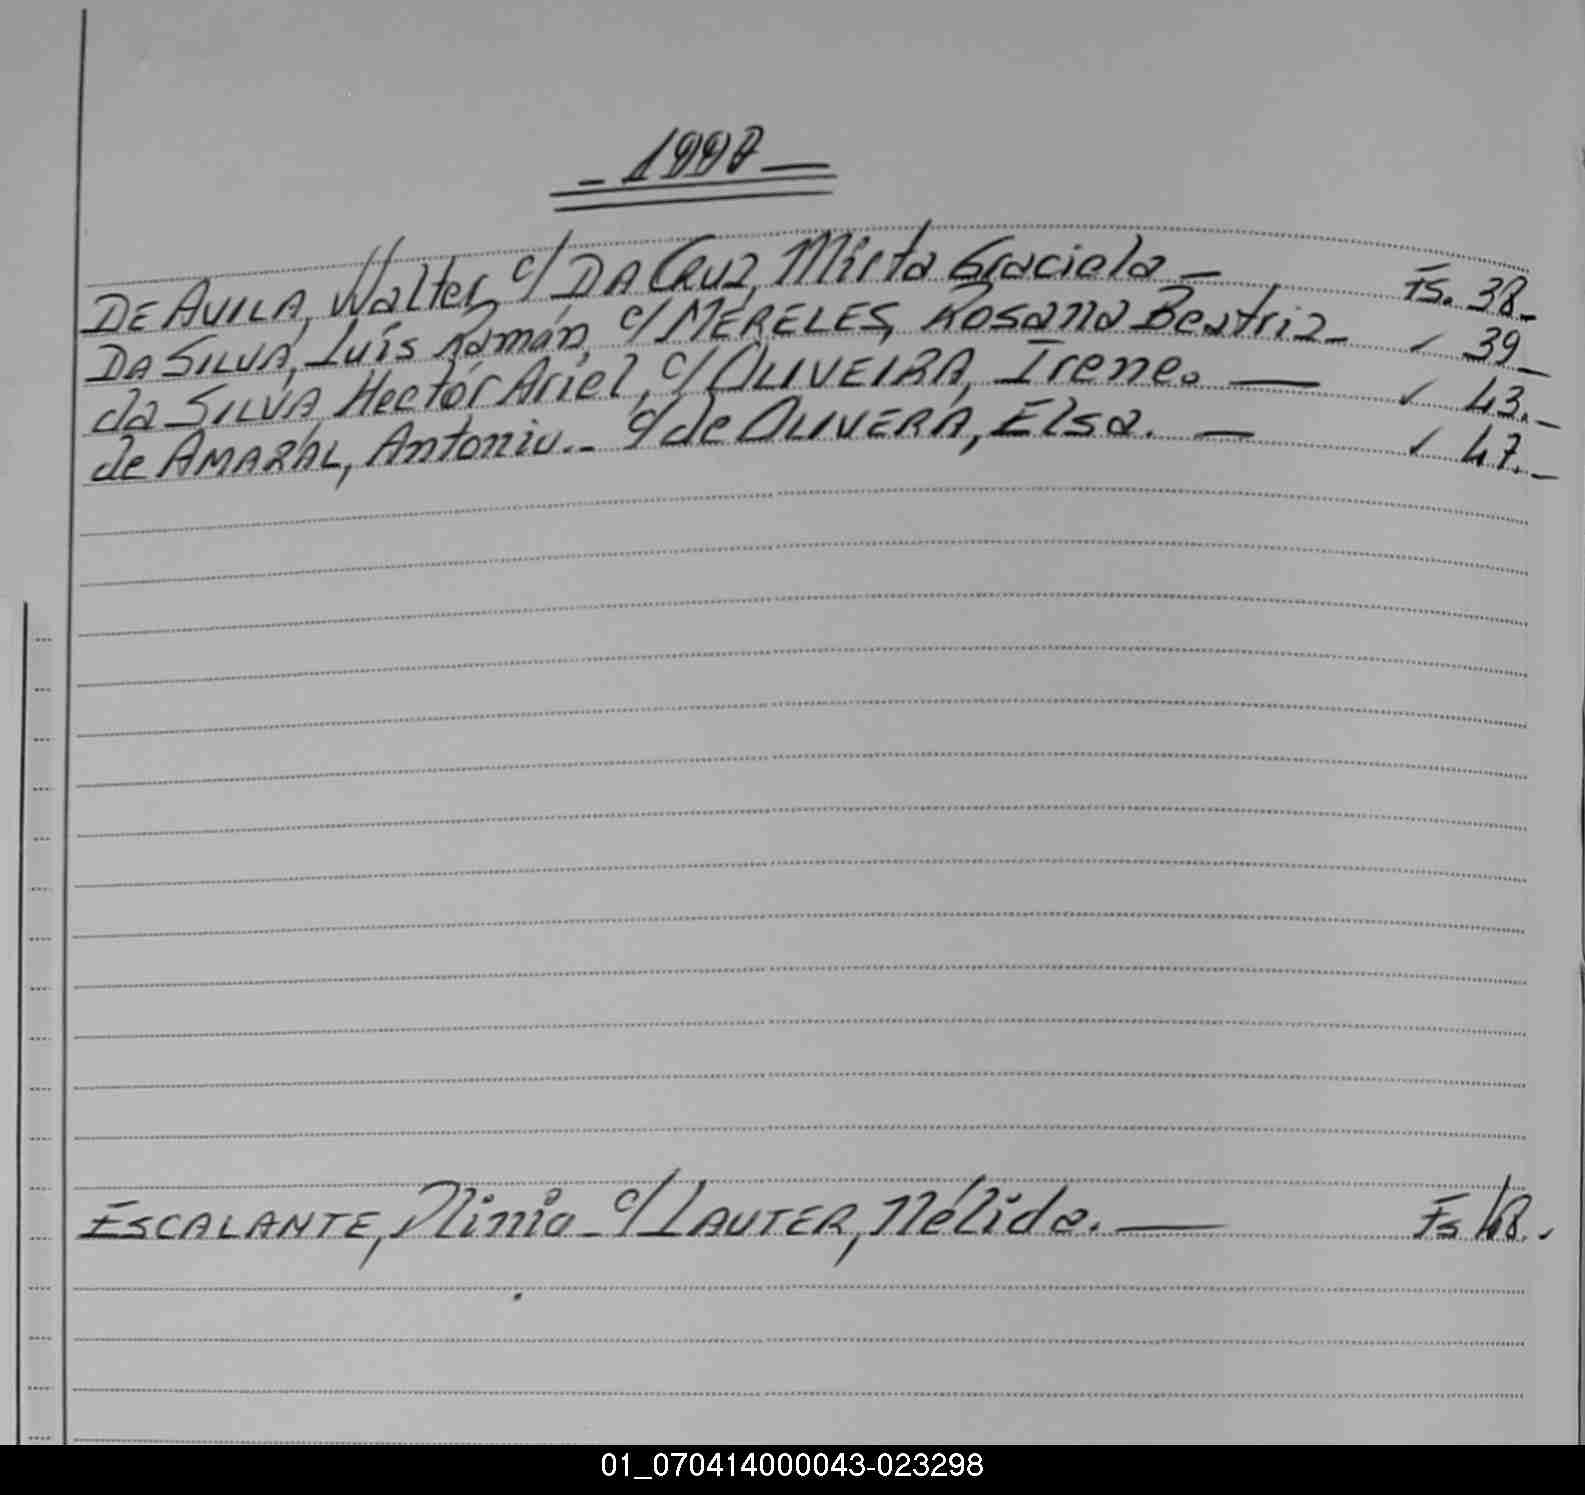 - 1997 -
DE AVILA, Walter, c/ DA CRUZ, Mirta Graciela - Fs. 38.-
DA SILVA, Luís Román, c/ MERELES, Rosana Beatriz - ✓ 39 -
da SILVA Hector Ariel, c/ OLIVEIRA, Irene. — ✓ 43.-
de AMARAL, Antonio.- c/ de OLIVERA, Elsa. — ✓ 47.-
ESCALANTE, Plinio - c/ LAUTER, Nélida. — Fs 48.-
01_070414000043-023298